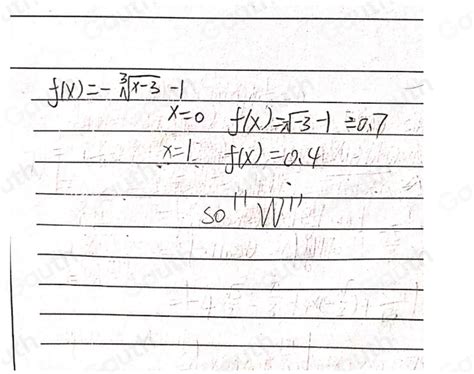 f(x)=-∛x-3 -1
x=0 f(x)=∛-3-1 =0.7
x=1 f(x)=0.4
so "W"